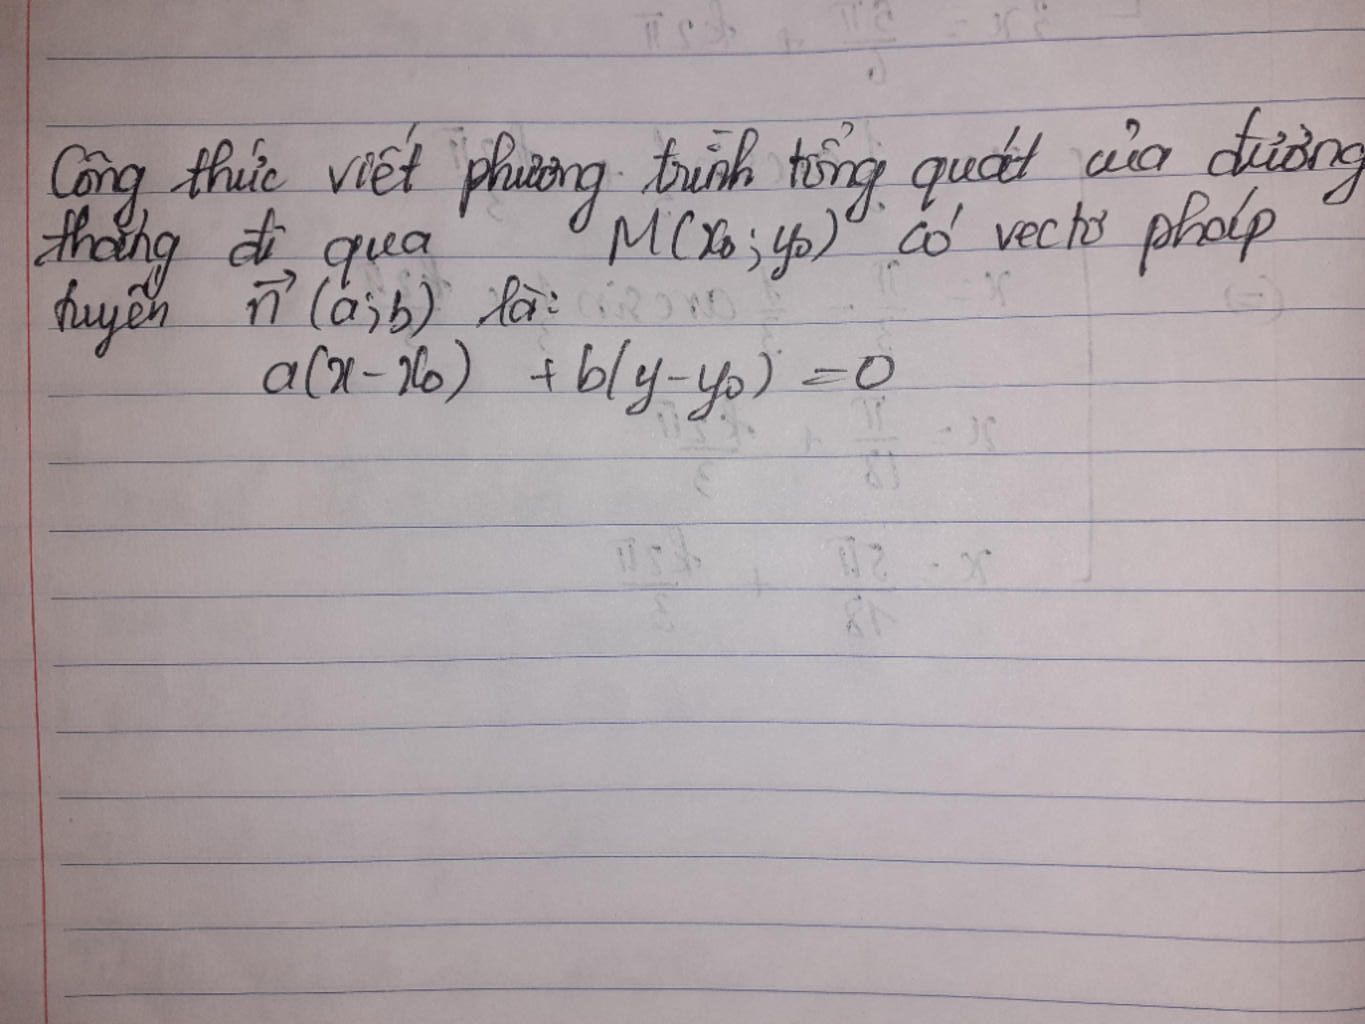 Công thức viết phương trình tổng quát của đường
thẳng đi qua M(x₀; y₀) có vectơ pháp
tuyến n⃗ (a; b) là:
a(x - x₀) + b(y - y₀) = 0